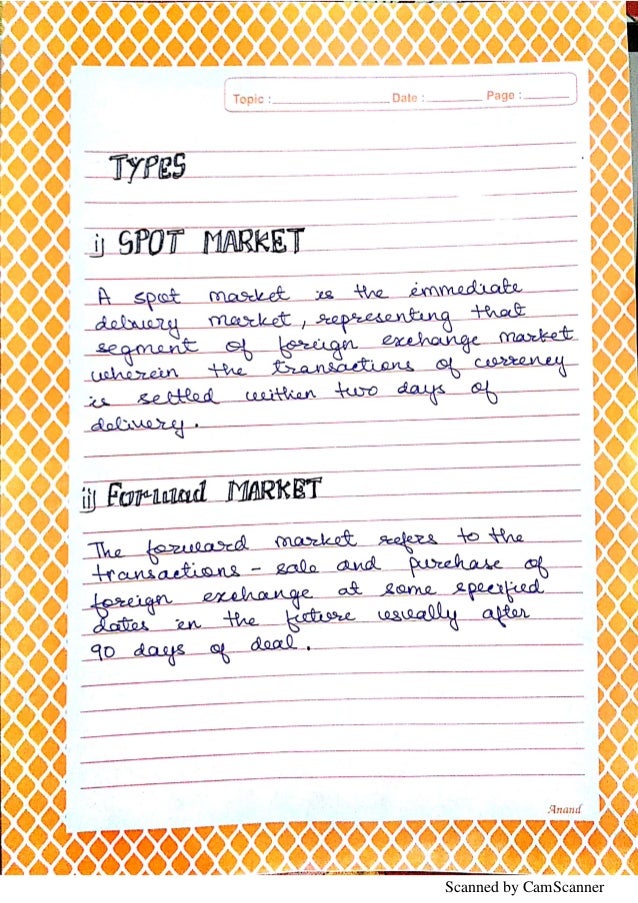 Topic : Date : Page :
TYPES
i) SPOT MARKET
A spot market is the immediate
delivery market, representing that
segment of foreign exchange market
wherein the transactions of currency
is settled within two days of
delivery.
ii) Forwad MARKET
The forward market refers to the
transactions - sale and purchase of
foreign exchange at some specified
dates in the future usually after
90 days of deal.
Anand
Scanned by CamScanner